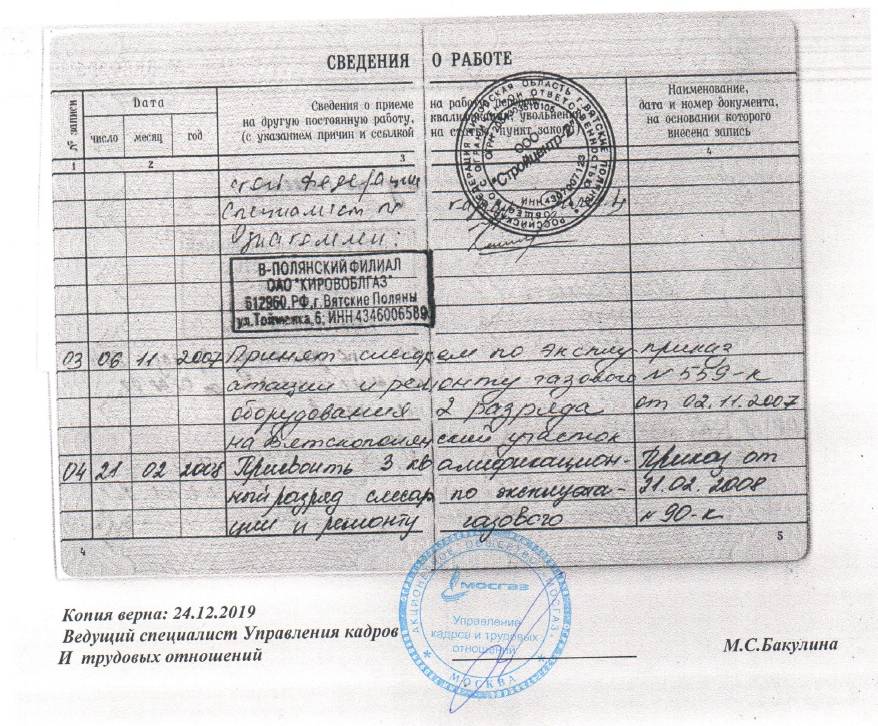 СВЕДЕНИЯ О РАБОТЕ
№ записи
Дата
число
месяц
год
Сведения о приеме на работу,
на другую постоянную работу, квалификации, увольнении
(с указанием причин и ссылкой на статью, пункт закона)
Наименование,
дата и номер документа,
на основании которого
внесена запись
1 2 3 4
Федерации
Специалист по
Ознакомлен:
РОССИЙСКАЯ ФЕДЕРАЦИЯ КИРОВСКАЯ ОБЛАСТЬ г. ВЯТСКИЕ ПОЛЯНЫ
ООО
"Стройцентр
В-ПОЛЯНСКИЙ ФИЛИАЛ
ОАО "КИРОВОБЛГАЗ"
612960,РФ,г.Вятские Поляны
ул.Тойменка,6, ИНН 4346006589
03 06 11 2007 Принят слесарем по эксплу- приказ
атации и ремонту газового № 559-к
оборудования 2 разряда от 02.11.2007
на Вятскополянский участок
04 21 02 2008 Присвоить 3 квалификацион- Приказ от
ный разряд слесаря по эксплуата- 21.02.2008
ции и ремонту газового № 90-к
4
5
АКЦИОНЕРНОЕ ОБЩЕСТВО МОСГАЗ
МОСГАЗ
Управление
кадров и трудовых
отношений
МОСКВА
Копия верна: 24.12.2019
Ведущий специалист Управления кадров
И трудовых отношений
М.С.Бакулина